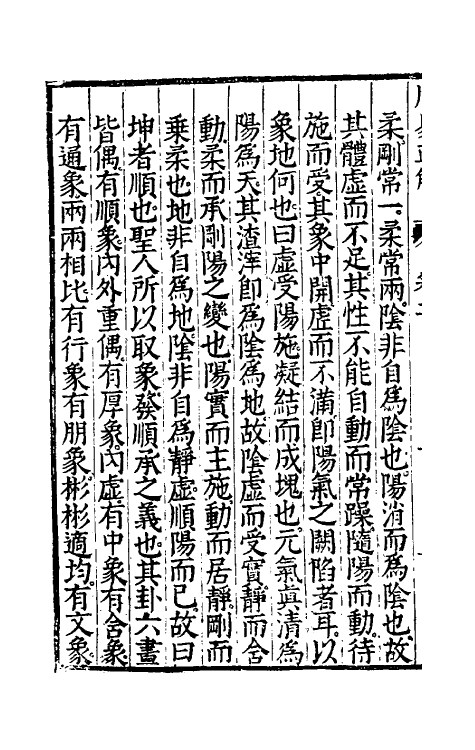 柔。剛常一。柔常兩。陰非自爲陰也。陽消而爲陰也。故
其體虛而不足。其性不能自動而常躁。隨陽而動。待
施而受。其象中開。虛而不滿。卽陽氣之闕陷者耳。以
象地何也。曰虛受陽施。凝結而成塊也。元氣眞清爲
陽爲天。其渣滓卽爲陰爲地。故陰虛而受實。靜而含
動。柔而承剛。陽之變也。陽實而主施。動而居靜。剛而
乗柔也。地非自爲地。陰非自爲靜。虛順陽而已。故曰
坤者順也。聖人所以取象。發順承之義也。其卦六畫
皆偶。有順象。內外重偶。有厚象。內虛。有中象。有含象。
有通象。兩兩相比。有行象。有朋象。彬彬適均。有文象。